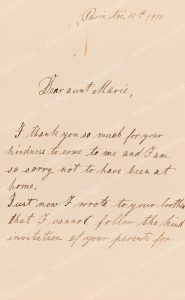 Paris, Nov. 14th
Dear aunt Marie,
I thank you so much for your
kindness to come to me and I am
so sorry not to have been at
home.
Just now I wrote to your brother
that I cannot follow the kind
invitation of your parents for